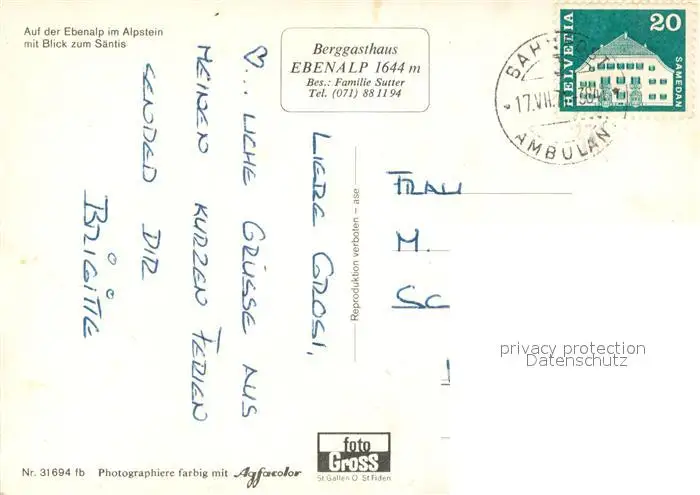 Auf der Ebenalp im Alpstein
mit Blick zum Säntis
Berggasthaus
EBENALP 1644 m
Bes.: Familie Sutter
Tel. (071) 88 11 94
HELVETIA
20
SAMEDAN
BAHNPOST
17.VII.
AMBULANT
LIEBE GROSI,
♡... LICHE GRÜSSE AUS
MEINEN KURZEN FERIEN
SENDED DIR
BRIGITTE
Reproduktion verboten – ase
FRAU
M.
SC
privacy protection
Datenschutz
foto
Gross
St. Gallen O St. Fiden
Nr. 31694 fb Photographiere farbig mit Agfacolor